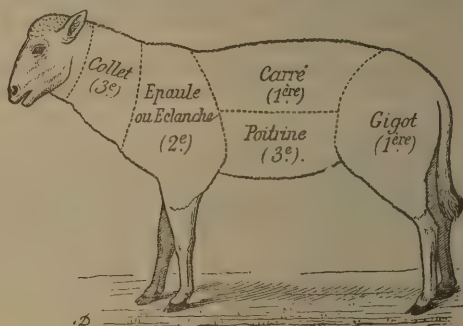 Collet
(3e.)
Epaule
ou Eclanche
(2e.)
Carré
(1ère)
Poitrine
(3e).
Gigot
(1ère)
.D